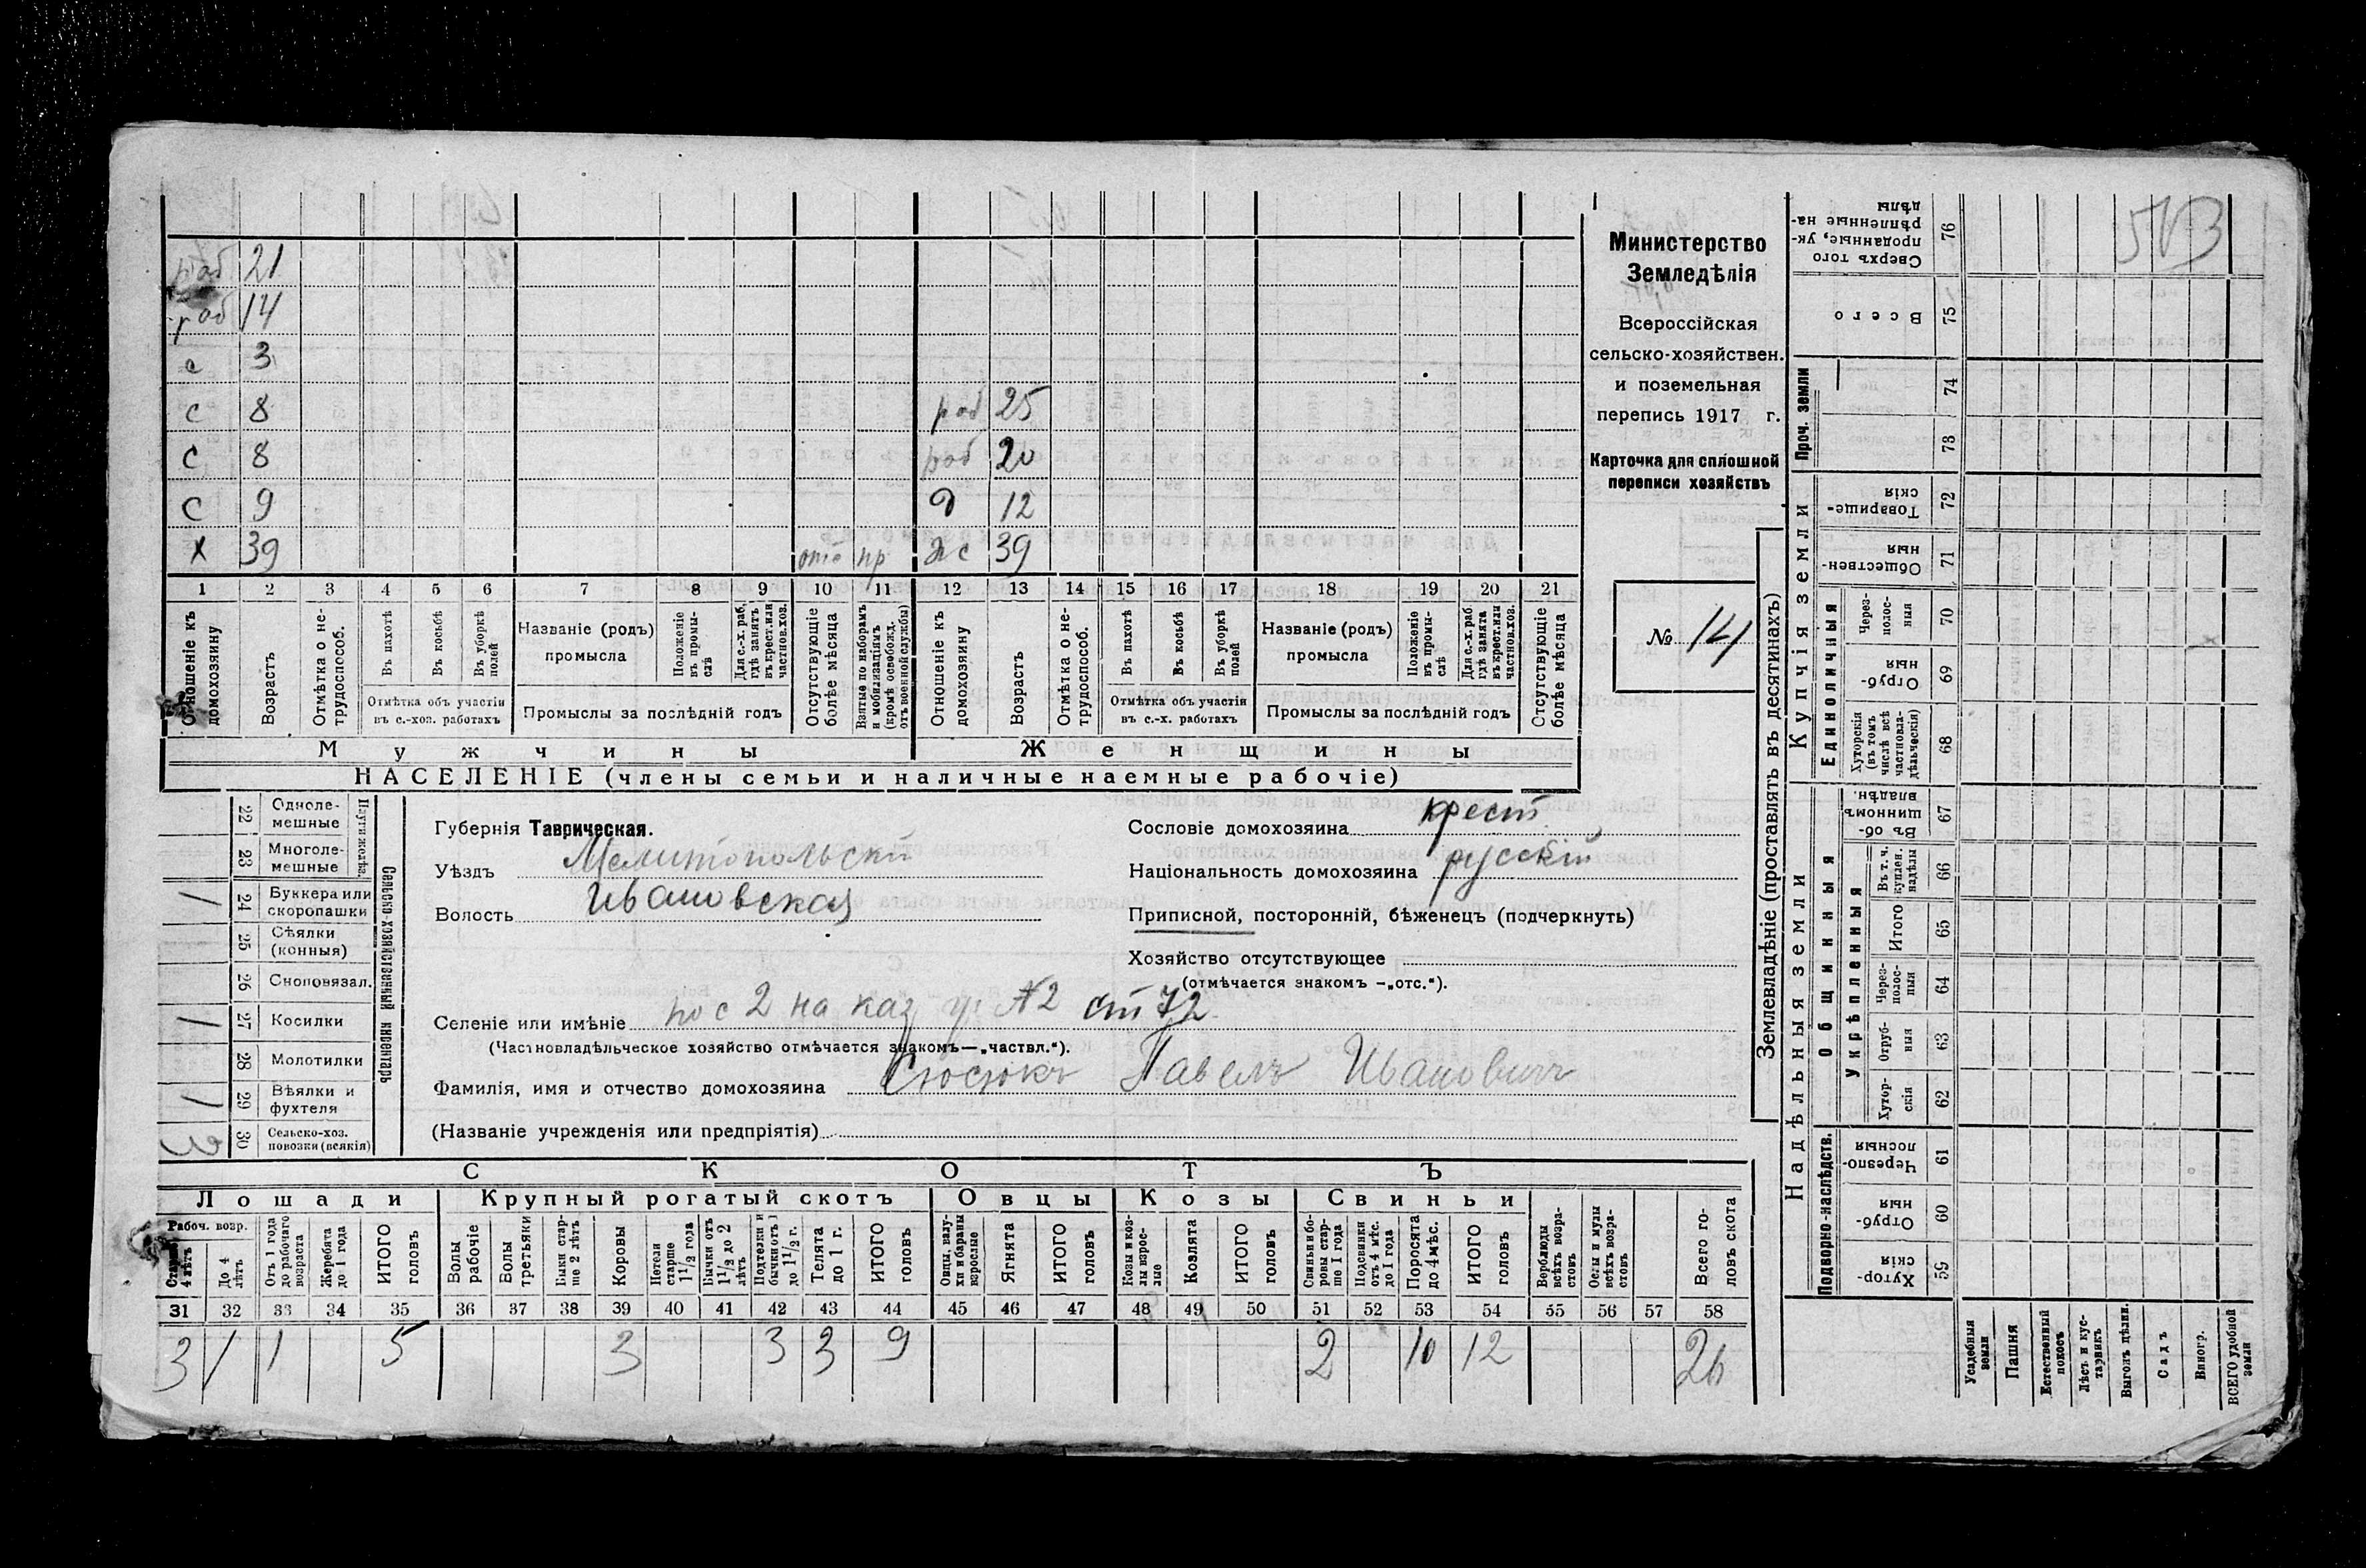 513
Министерство
Земледѣлія
Всероссійская
сельско-хозяйствен.
и поземельная
перепись 1917 г.
Карточка для сплошной
переписи хозяйствъ
№ 141
раб 21
раб 14
с 3
с 8 раб 25
с 8 раб 20
с 9 д 12
х 39 отс пр жс 39
1 2 3 4 5 6 7 8 9 10 11 12 13 14 15 16 17 18 19 20 21
Отношеніе къ домохозяину
Возрастъ
Отмѣтка о не-трудоспособ.
Въ пахотѣ
Въ косьбѣ
Въ уборкѣ полей
Отмѣтка объ участіи въ с.-хоз. работахъ
Названіе (родъ) промысла
Положеніе въ промы-слѣ
Для с.-х. раб. гдѣ занятъ въ крест. или частнов. хоз.
Промыслы за послѣдній годъ
Отсутствующіе болѣе мѣсяца
Взятые по наборамъ и мобилизаціямъ (кромѣ освобожд. отъ военной службы)
Отношеніе къ домохозяину
Возрастъ
Отмѣтка о не-трудоспособ.
Въ пахотѣ
Въ косьбѣ
Въ уборкѣ полей
Отмѣтка объ участіи въ с.-х. работахъ
Названіе (родъ) промысла
Положеніе въ промы-слѣ
Для с.-х. раб. гдѣ занята въ крест. или частнов. хоз.
Промыслы за послѣдній годъ
Отсутствующіе болѣе мѣсяца
Мужчины Женщины
НАСЕЛЕНІЕ (члены семьи и наличные наемные рабочіе)
Сельско-хозяйственный инвентарь
Плуги желѣз.
22 Одноле-мешные
23 Многоле-мешные
24 Буккера или скоропашки 1
25 Сѣялки (конныя)
26 Сноповязал.
27 Косилки 1
28 Молотилки
29 Вѣялки и фухтеля 1
30 Сельско-хоз. повозки (всякія) 3
Губернія Таврическая.
Уѣздъ Мелитопольскій
Волость Ивановская
Сословіе домохозяина крест.
Національность домохозяина русскій
Приписной, посторонній, бѣженецъ (подчеркнуть)
Хозяйство отсутствующее
(отмѣчается знакомъ —„отс.“).
Селеніе или имѣніе пос 2 на каз уч №2 ст 72
(Частновладѣльческое хозяйство отмѣчается знакомъ—„частвл.“).
Фамилія, имя и отчество домохозяина Сюсюкъ Павелъ Ивановичъ
(Названіе учрежденія или предпріятія)
СКОТЪ
Лошади Крупный рогатый скотъ Овцы Козы Свиньи
Рабоч. возр.
Старше 4 лѣтъ
До 4 лѣтъ
Отъ 1 года до рабочаго возраста
Жеребята до 1 года
ИТОГО головъ
Волы рабочіе
Волы третьяки
Быки стар-ше 2 лѣтъ
Коровы
Нетели старше 1½ года
Бычки отъ 1½ до 2 лѣтъ
Подтелки и бычки отъ 1 до 1½ г.
Телята до 1 г.
ИТОГО головъ
Овцы, валу-хи и бараны взрослые
Ягнята
ИТОГО головъ
Козы и коз-лы взрос-лые
Козлята
ИТОГО головъ
Свиньи и бо-ровы стар-ше 1 года
Подсвинки отъ 4 мѣс. до 1 года
Поросята до 4 мѣс.
ИТОГО головъ
Верблюды всѣхъ возра-стовъ
Ослы и мулы всѣхъ возра-стовъ
Всего го-ловъ скота
31 32 33 34 35 36 37 38 39 40 41 42 43 44 45 46 47 48 49 50 51 52 53 54 55 56 57 58
3 1 1 5 3 3 3 9 2 10 12 26
Землевладѣніе (проставлять въ десятинахъ)
Надѣльныя земли
Купчія земли
Проч. земли
Подворно-наслѣдств.
Общинныя
Укрѣпленныя
Единоличныя
59 Хутор-скія
60 Отруб-ныя
61 Черезпо-лосныя
62 Хутор-скія
63 Отруб-ныя
64 Через-полос-ныя
65 Итого
66 Въ т. ч. куплен. надѣлы
67 Въ об-щинномъ владѣн.
68 Хуторскія (въ томъ числѣ всѣ частновла-дѣльческія)
69 Отруб-ныя
70 Через-полос-ныя
71 Обществен-ныя
72 Товарище-скія
73
74
75 Всего
76 Сверхъ того проданные, ук-рѣпленные на-дѣлы
Усадебныя земли
Пашня
Естественный покосъ
Лѣсъ и кус-тарникъ
Выгонъ цѣлин.
Садъ
Виногр.
ВСЕГО удобной земли